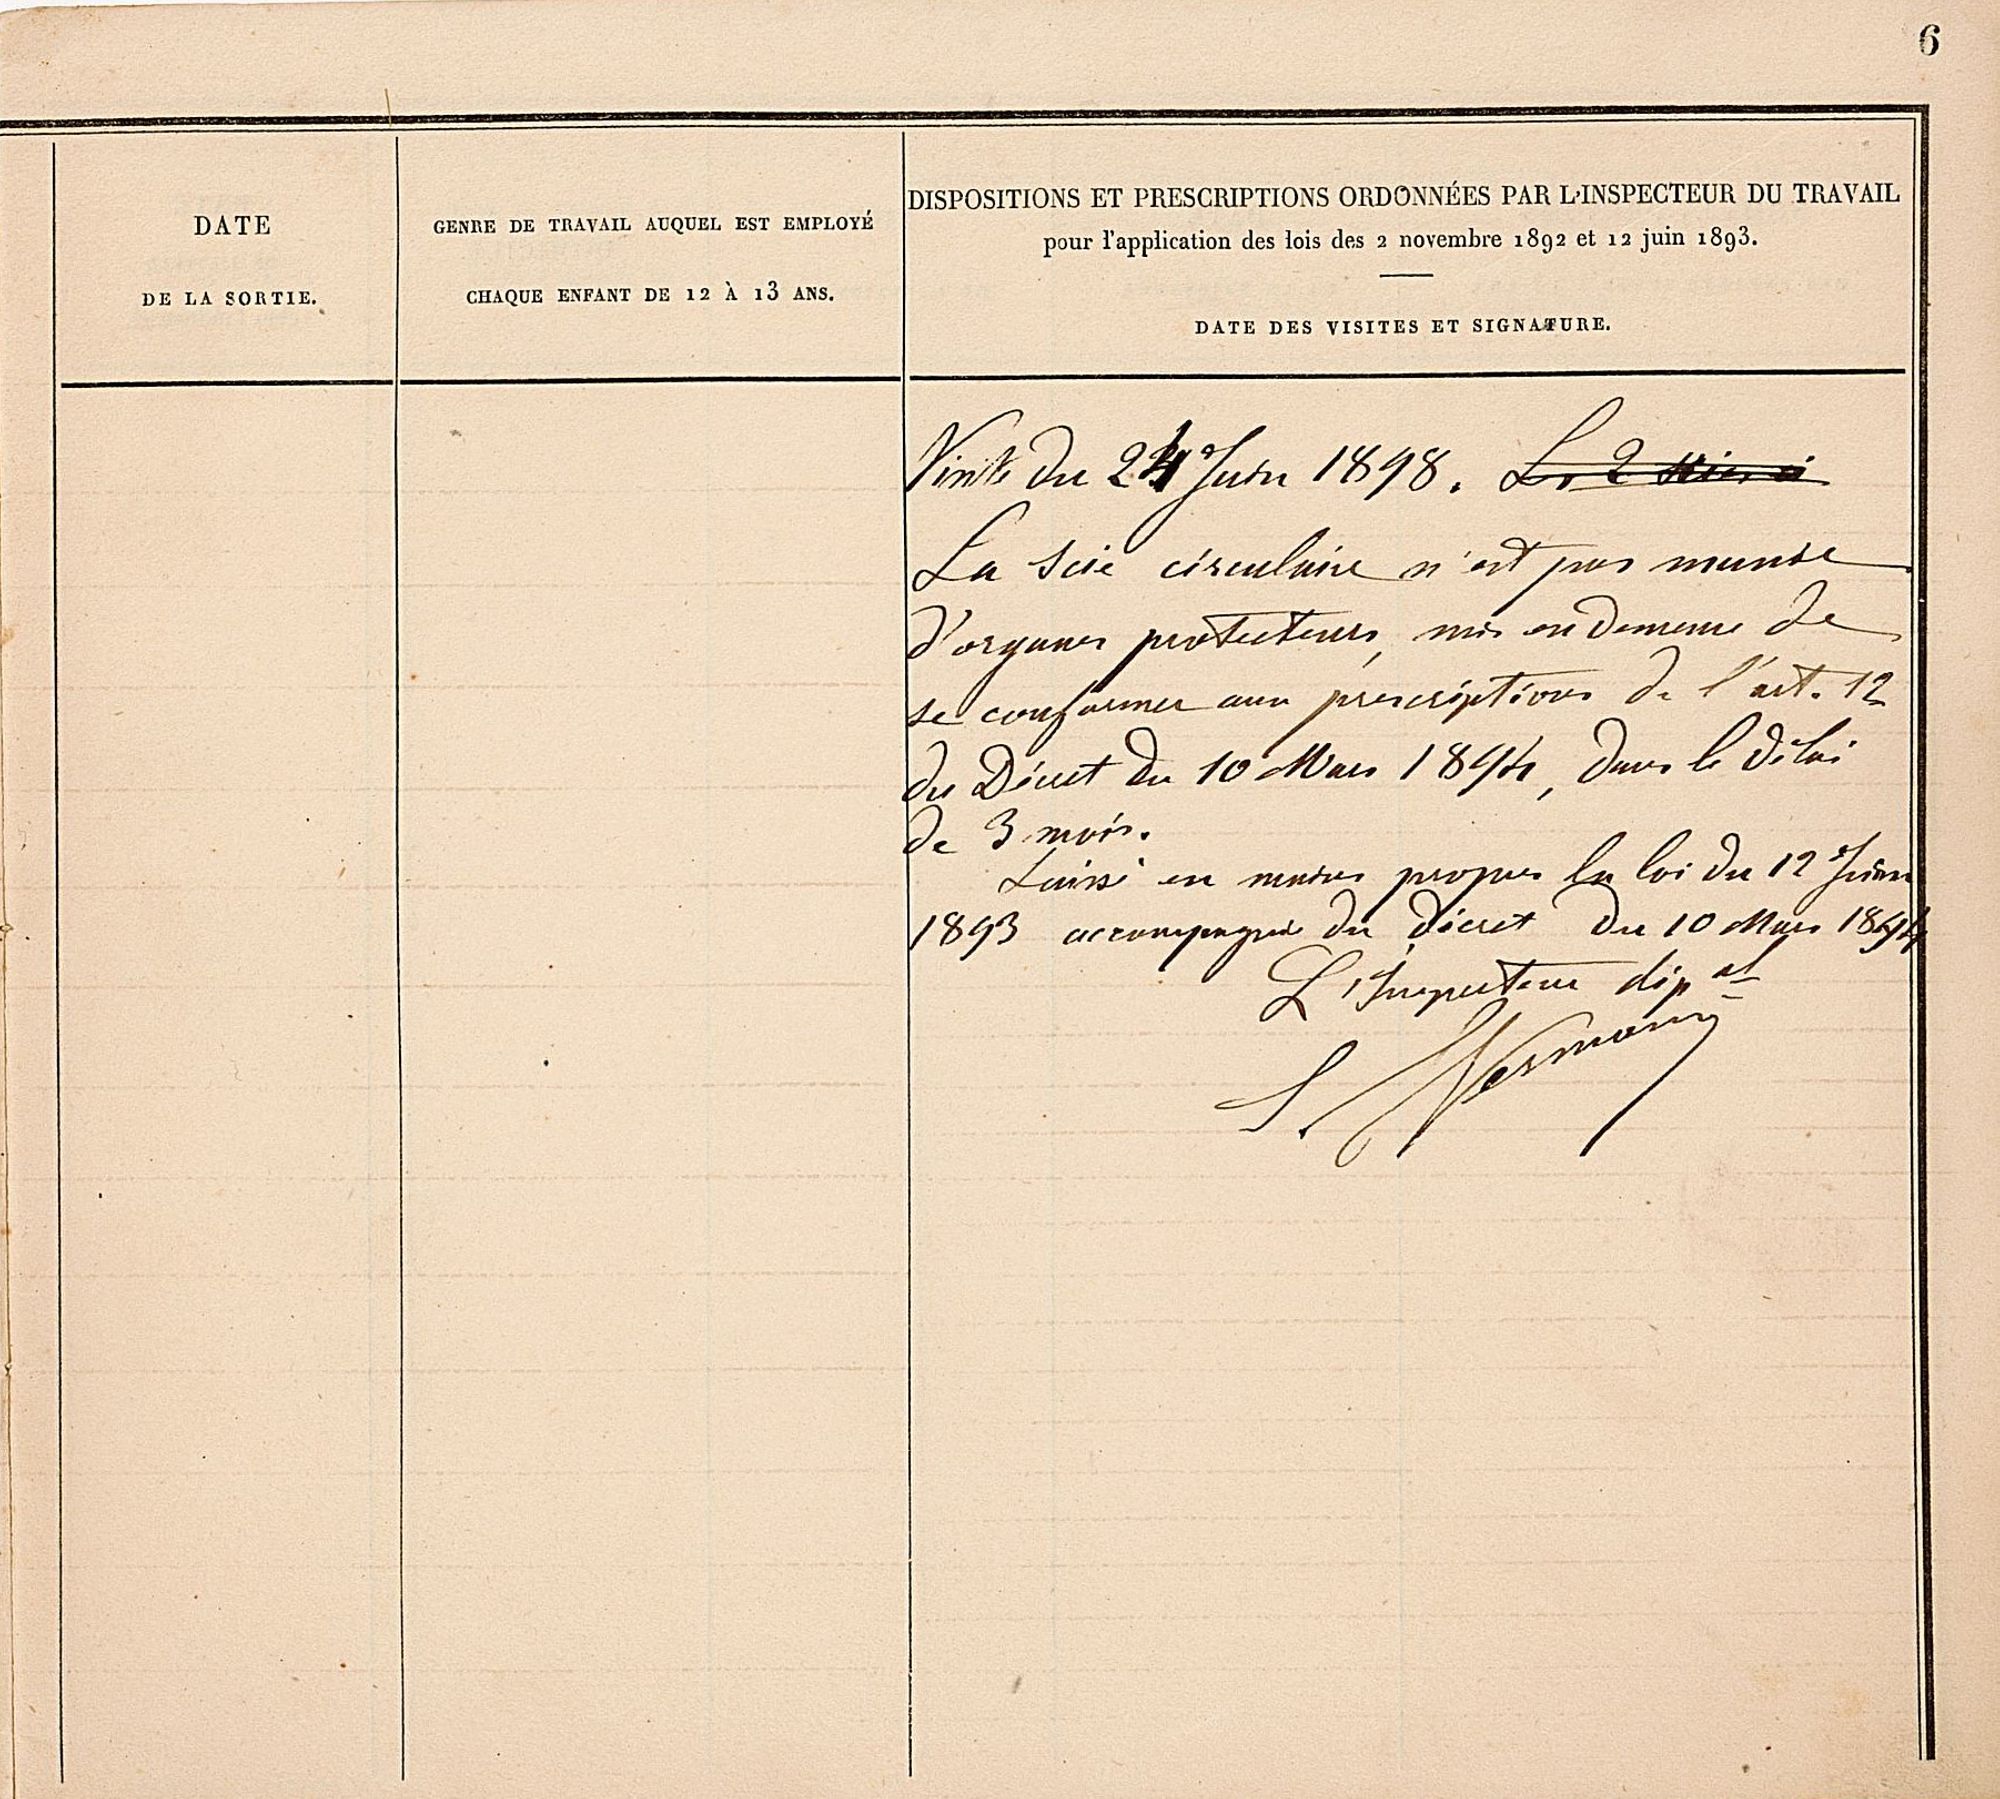 6
DATE
DE LA SORTIE.
GENRE DE TRAVAIL AUQUEL EST EMPLOYÉ
CHAQUE ENFANT DE 12 À 13 ANS.
DISPOSITIONS ET PRESCRIPTIONS ORDONNÉES PAR L'INSPECTEUR DU TRAVAIL
pour l'application des lois des 2 novembre 1892 et 12 juin 1893.
DATE DES VISITES ET SIGNATURE.
Visite du 24 Juin 1898.
La scie circulaire n'est pas munie
d'organes protecteurs, mis en demeure de
se conformer aux prescriptions de l'art. 12
du Décret du 10 Mars 1894, dans le délai
de 3 mois.
Laissé en mains propres la loi du 12 Juin
1893 accompagnée du décret du 10 Mars 1894
L'Inspecteur dép al